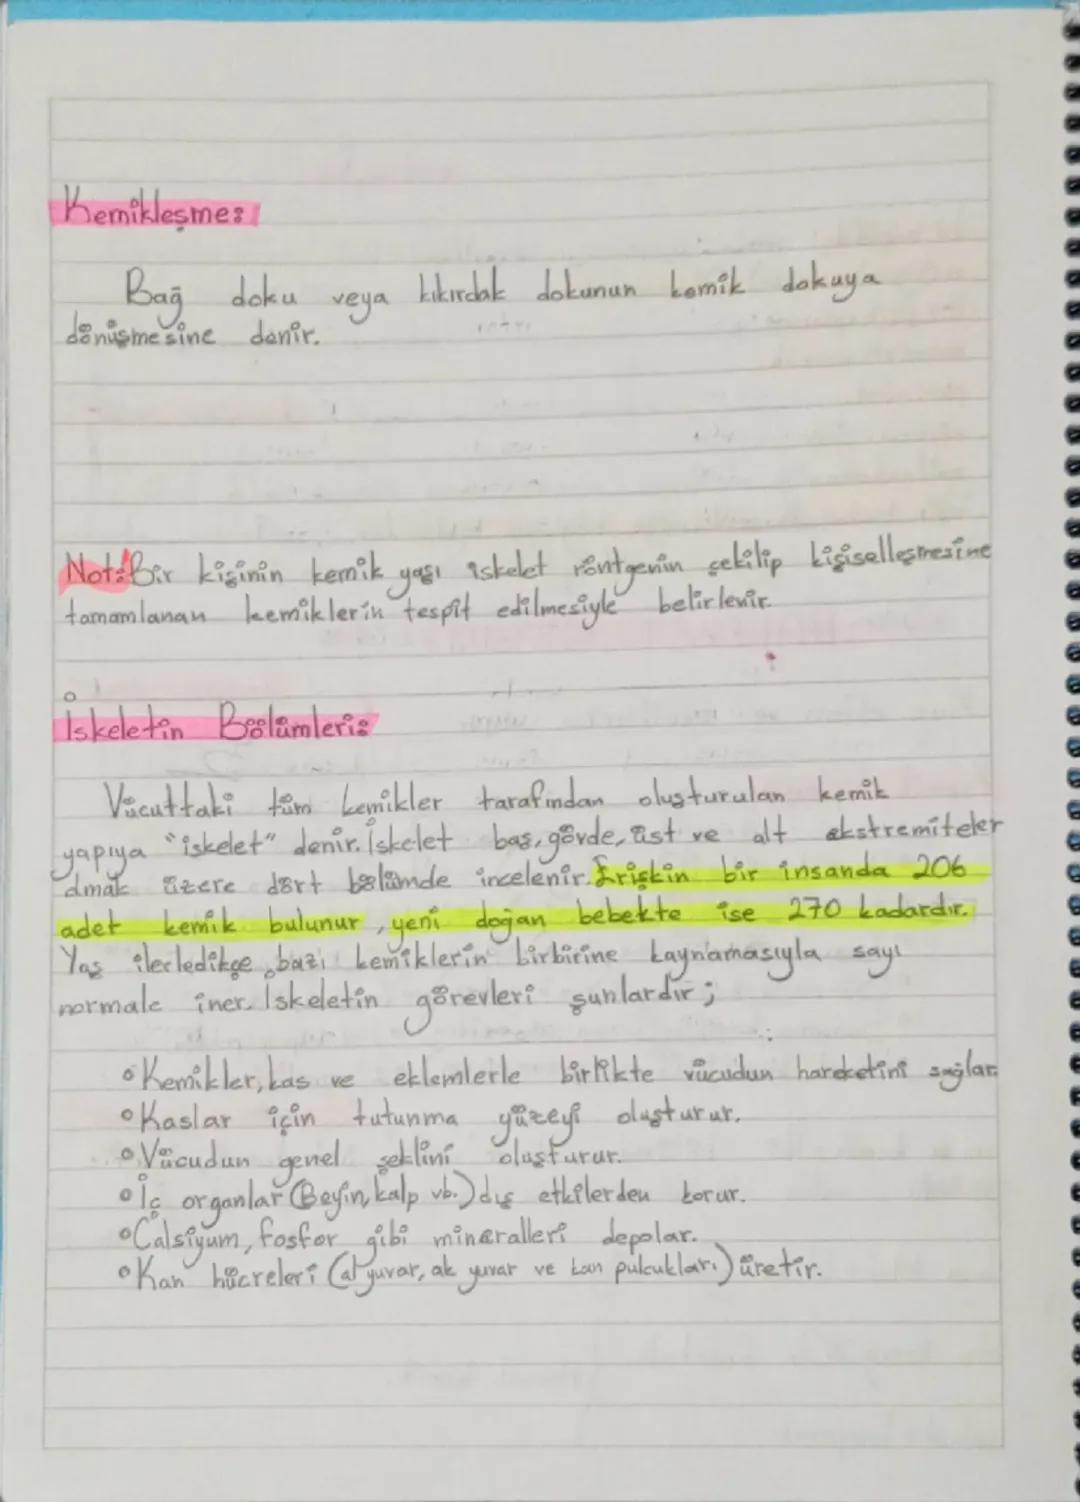 Kemikleşme:
Bağ doku veya kıkırdak dokunun kemik dokuya
dönüşmesine denir.
Not: Bir kişinin kemik yaşı iskelet röntgenin çekilip kişiselleşmesine
tamamlanan kemiklerin tespit edilmesiyle belirlenir.
İskeletin Bölümleri:
Vücuttaki tüm kemikler tarafından oluşturulan kemik
yapıya "iskelet" denir. İskelet baş, gövde, üst ve alt ekstremiteler
olmak üzere dört bölümde incelenir. Erişkin bir insanda 206
adet kemik bulunur, yeni doğan bebekte ise 270 kadardır.
Yaş ilerledikçe, bazı kemiklerin birbirine kaynamasıyla sayı
normale iner. İskeletin görevleri şunlardır;
• Kemikler, kas ve eklemlerle birlikte vücudun hareketini sağlar.
• Kaslar için tutunma yüzeyi oluşturur.
• Vücudun genel şeklini oluşturur.
• İç organlar (Beyin, kalp vb.) dış etkilerden korur.
• Calsiyum, fosfor gibi mineralleri depolar.
• Kan hücreleri (al yuvar, ak yuvar ve kan pulcukları) üretir.